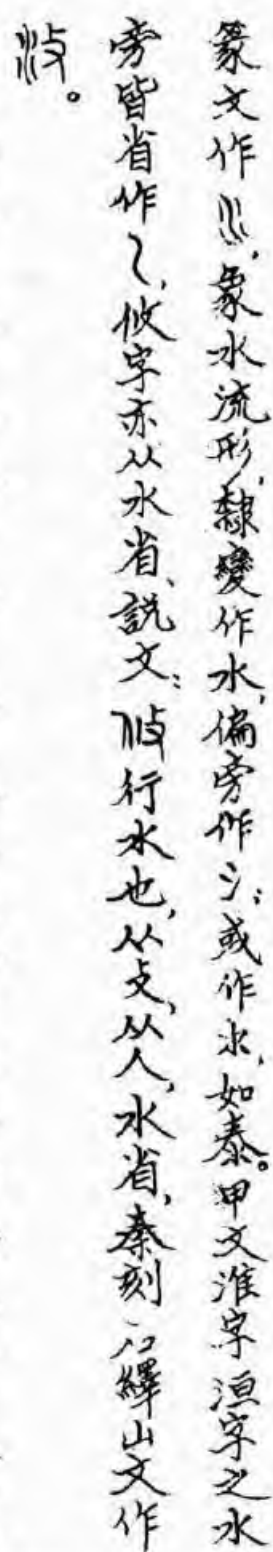 篆文作，象水流形，隸變作水，偏旁作氵；或作氺，如泰。甲文淮字洹字之水
旁皆省作，攸字亦从水省、説文：攸行水也，从攴，从人，水省，秦刻石繹山文作
汥。